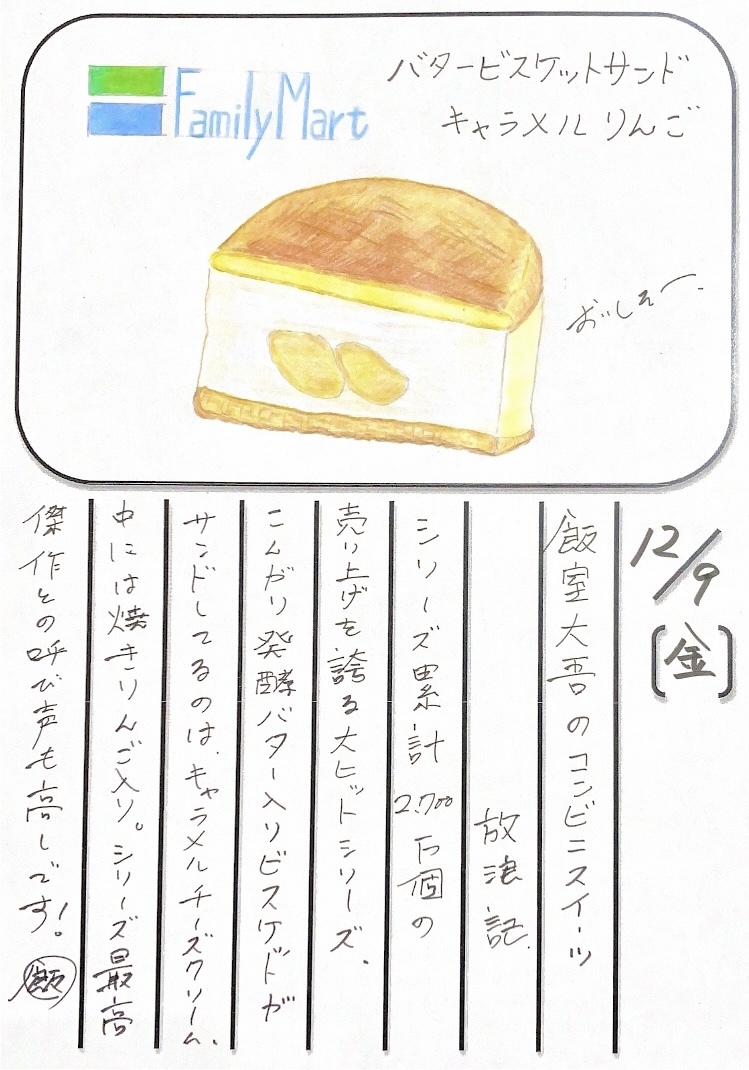 FamilyMart
バタービスケットサンド
キャラメルりんご
おいしぇー.
12/9
[金]
飯室大吾のコンビニスイーツ
放浪記.
シリーズ累計2,700万個の
売り上げを誇る大ヒットシリーズ.
こんがり発酵バター入りビスケットが
サンドしてるのは、キャラメルチーズクリーム.
中には焼きりんご入り。シリーズ最高
傑作との呼び声も高しです!
飯